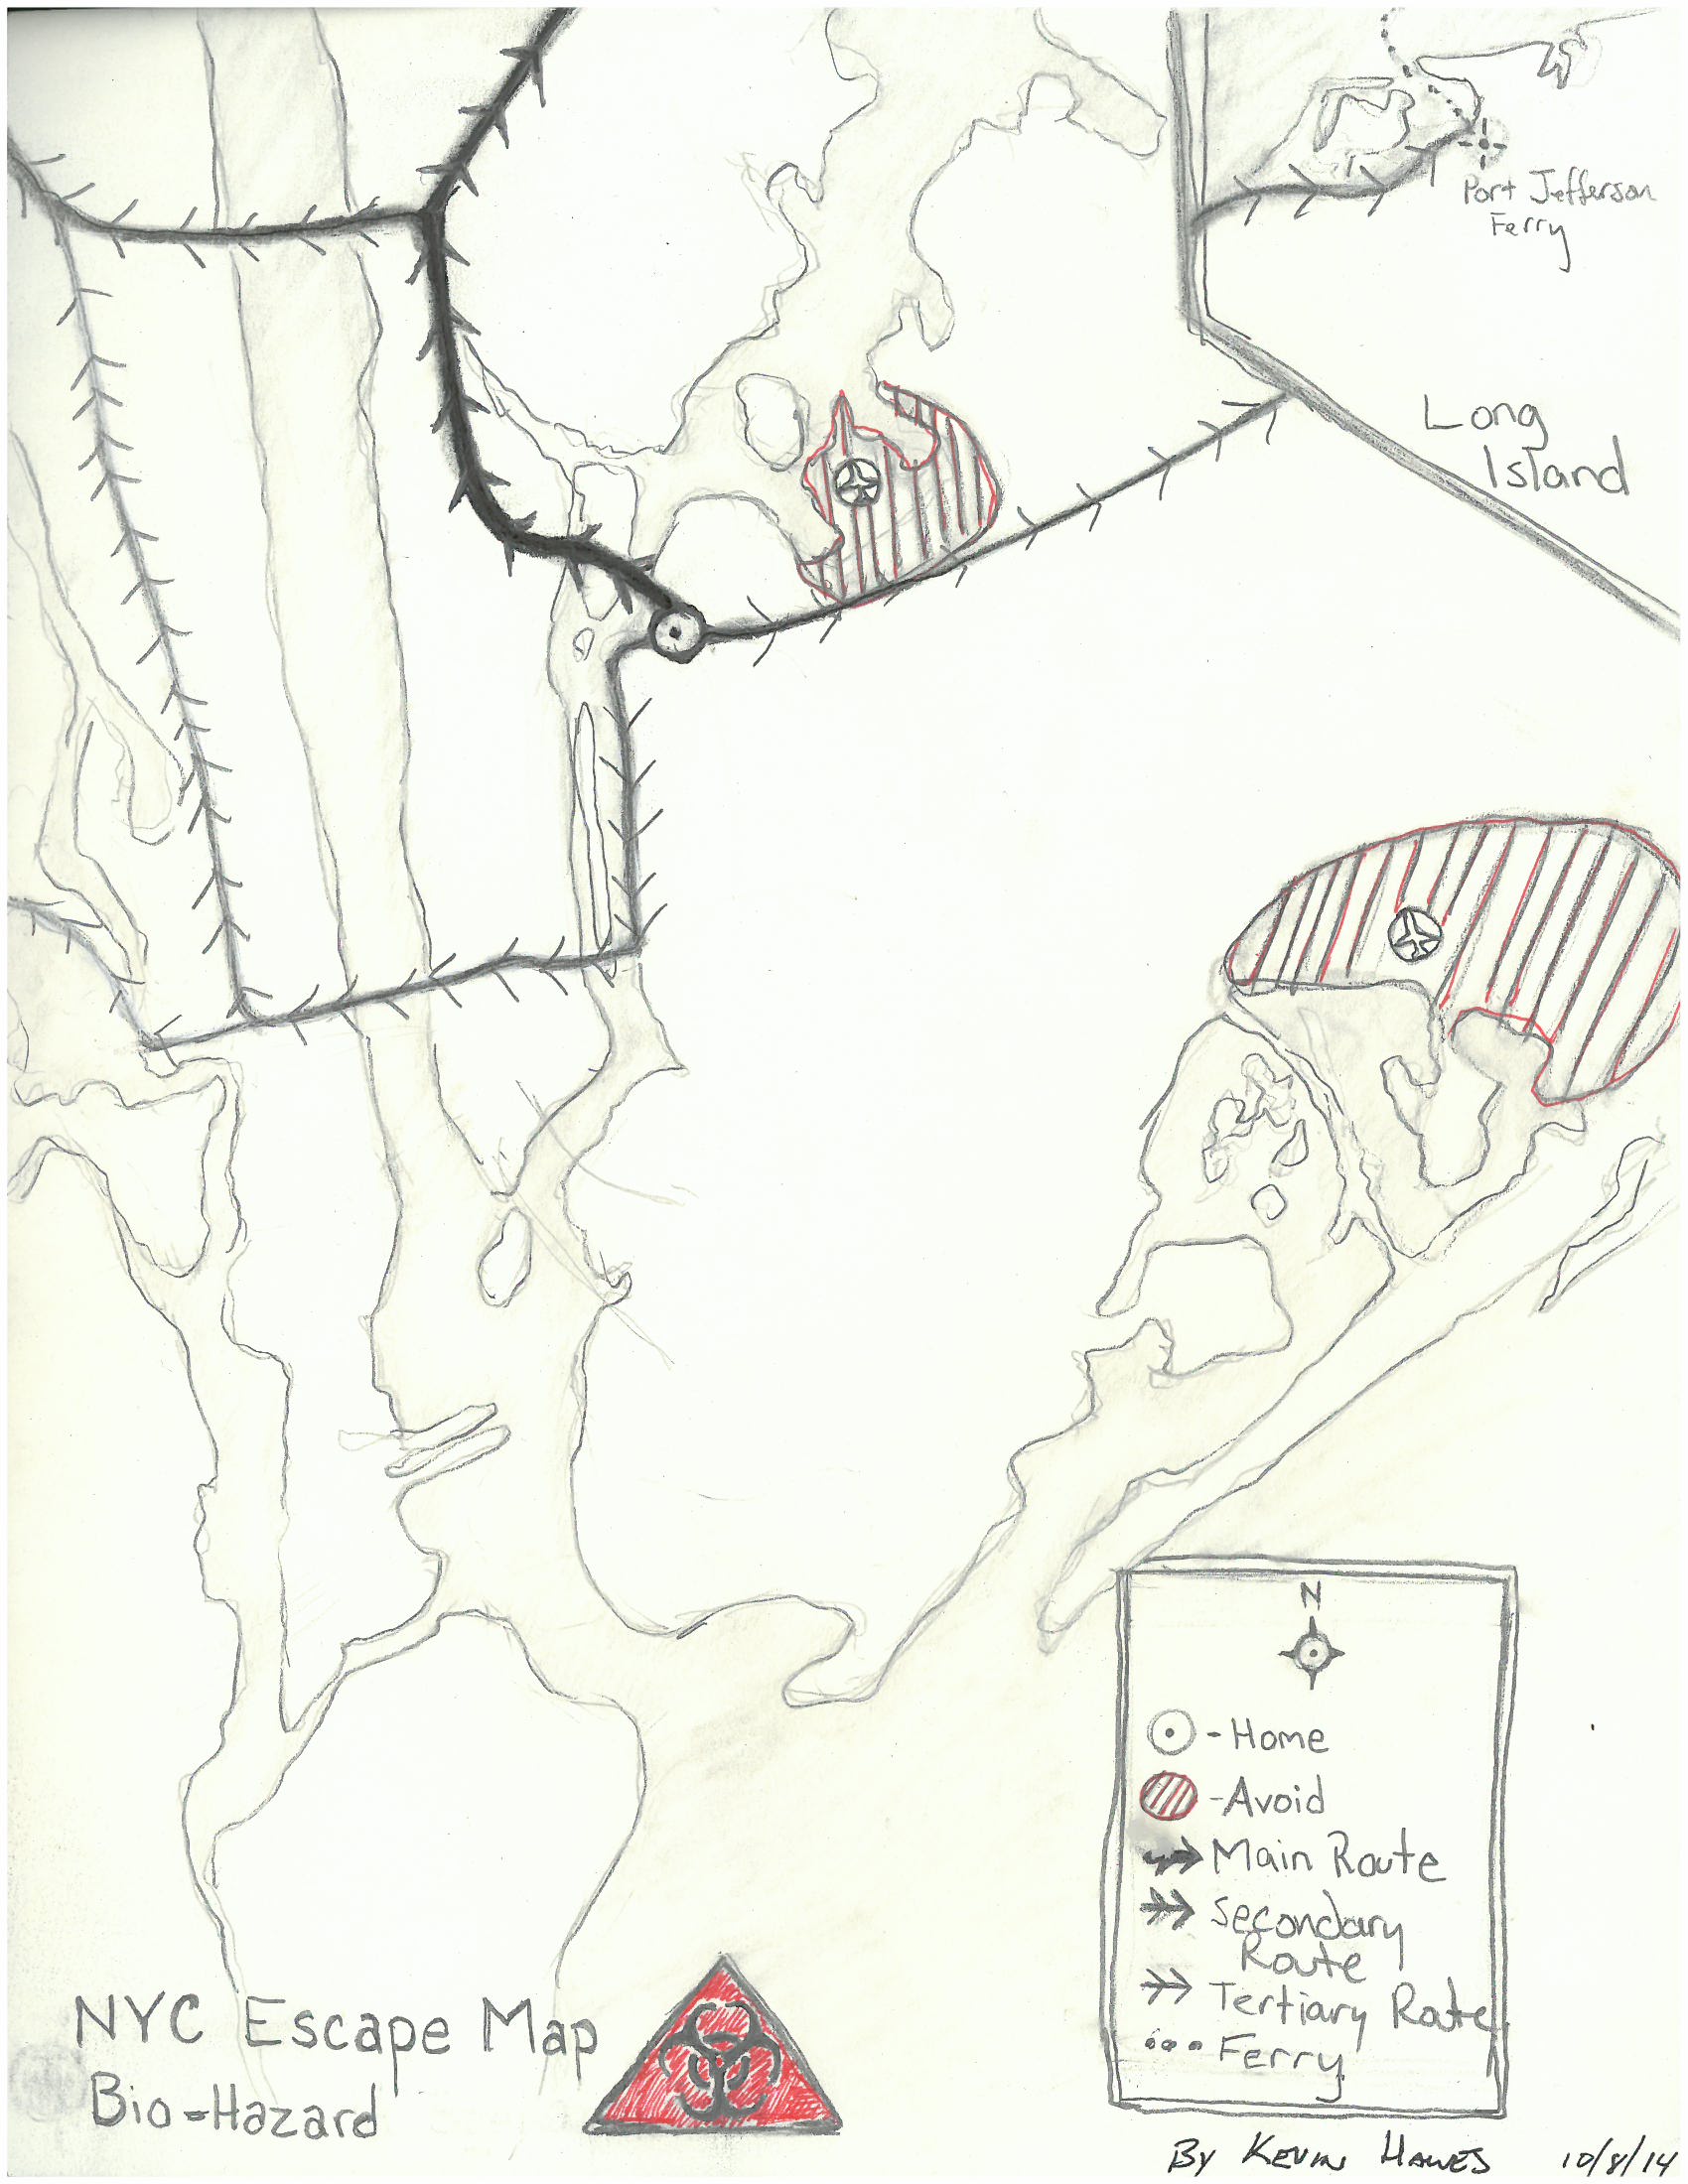 Port Jefferson
Ferry
Long
Island
N
-Home
-Avoid
Main Route
Secondary
Route
Tertiary Route
Ferry
NYC Escape Map
Bio-Hazard
By Kevin Hawes 10/8/14